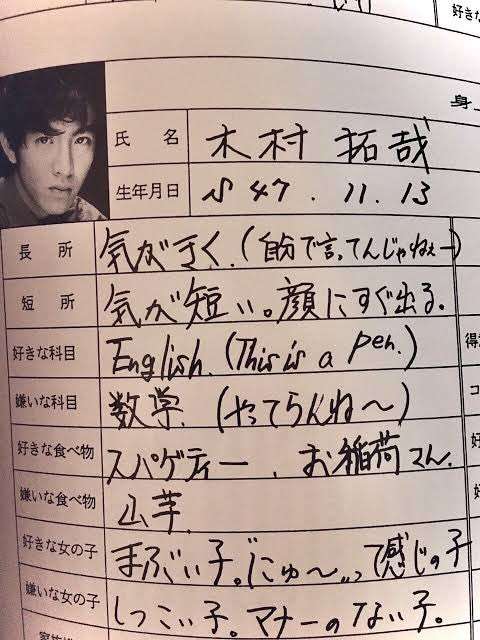 好きな
身
氏 名 木村 拓哉
生年月日 S47.11.13
長 所 気がきく。(自分で言ってんじゃねぇー)
短 所 気が短い。顔にすぐ出る。
好きな科目 English.(This is a pen.)
嫌いな科目 数学.(やってらんね〜)
好きな食べ物 スパゲティー、お稲荷さん.
嫌いな食べ物 山芋.
好きな女の子 まぶい子。"にゅ〜"って感じの子
嫌いな女の子 しつこい子。マナーのない子。